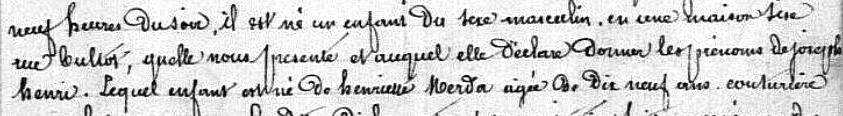 neuf heures du soir, il est né un enfant du sexe masculin, en une maison sise
rue Bultot, quelle nous présente et auquel elle déclare donner les prénoms de joseph
henri. Lequel enfant est né de henriette Merda agée de Dix neuf ans, couturière